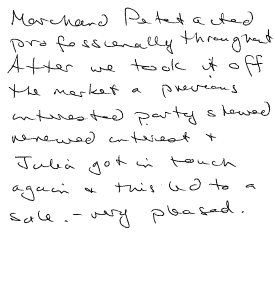 Marchand Petit acted
professionally throughout
After we took it off
the market a previous
interested party showed
renewed interest +
Julia got in touch
again & this led to a
sale. - very pleased.